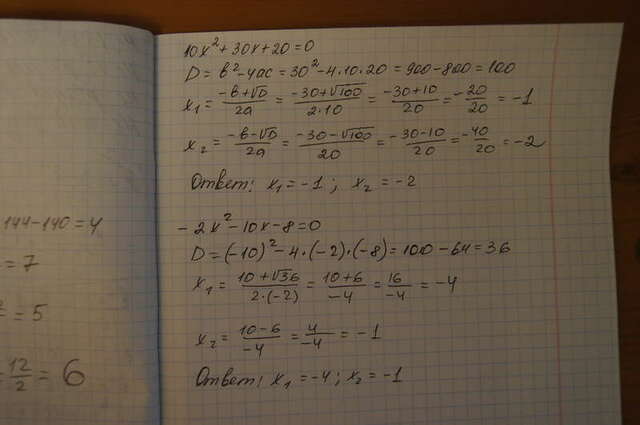 144-140=4
=7
=5
12/2=6
10x²+30x+20=0
D=b²-4ac=30²-4·10·20=900-800=100
x₁=(-b+√D)/2a=(-30+√100)/2·10=(-30+10)/20=-20/20=-1
x₂=(-b-√D)/2a=(-30-√100)/20=(-30-10)/20=-40/20=-2
Ответ: x₁=-1; x₂=-2
-2x²-10x-8=0
D=(-10)²-4·(-2)·(-8)=100-64=36
x₁=(10+√36)/2·(-2)=(10+6)/-4=16/-4=-4
x₂=(10-6)/-4=4/-4=-1
Ответ: x₁=-4; x₂=-1